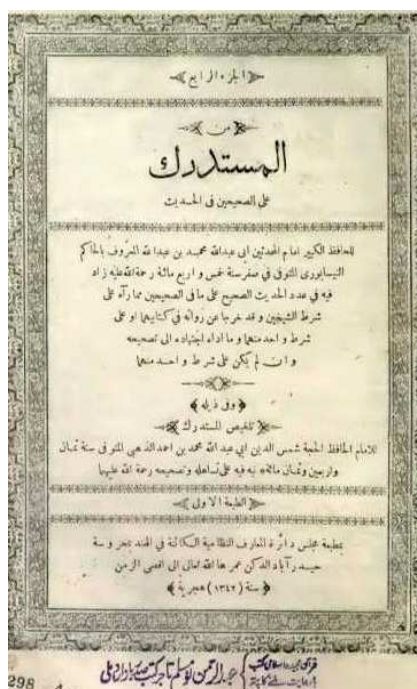 الجزء الرابع
من
المستدرك
على الصحيحين فى الحديث
للحافظ الكبير امام المحدثين ابى عبدالله محمد بن عبدالله المعروف بالحاكم
النيسابورى المتوفى فى صفر سنة خمس و اربع مائة رحمة الله عليه زاد
فيه فى عدد الحديث الصحيح على ما فى الصحيحين مما رآه على
شرط الشيخين و قد خرجا عن رواته فى كتابيهما او على
شرط واحد منهما و ما اداه اجتهاده الى تصحيحه
و ان لم يكن على شرط واحد منهما
و فى ذيله
تلخيص المستدرك
للامام الحافظ الحجة شمس الدين ابى عبدالله محمد بن احمد الذهبى المتوفى سنة ثمان
واربعين وثمان مائة نبه فيه على تساهله وتصحيحه رحمة الله عليهما
الطبعة الاولى
بمطبعة مجلس دائرة المعارف النظامية الكائنة فى الهند بمحروسة
حيدر آباد الدكن عمرها الله تعالى الى اقصى الزمن
سنة (١٣٤٢) هجرية
298